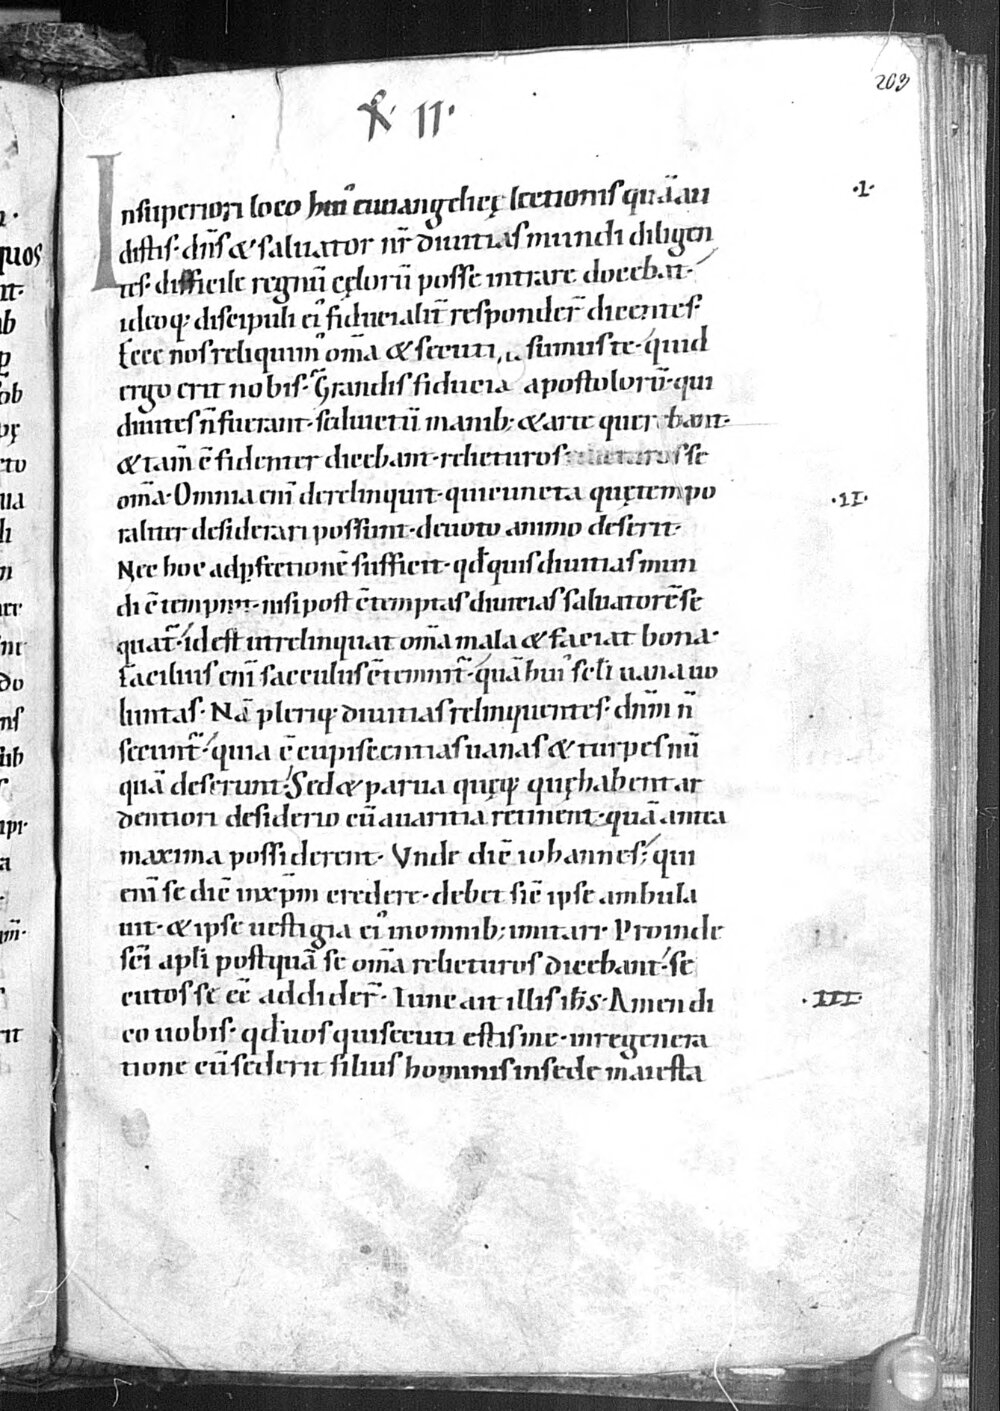 203
X· II·
·I·
Insuperiori loco hui᾽ euuangelicę lectionis quā au
distis· dn̄s & saluator nr̄ diuitias mundi diligen
tes· difficile regnū cęlorū posse intrare docebat·
ideoq; discipuli ei᾽ fiducialit̄ responder̄ dicentes·
Ecce nos reliquim᾽ om̄a & secuti sumus te· quid
ergo erit nobis· Grandis fiducia apostolorū· qui
diuites n̄ fuerant· sed uictū manib; & arte querebant·
& tam̄ c̄fidenter dicebant· relicturos se
om̄a· Omnia eni̅ derelinquit· qui cuncta quę tempo
·II·
raliter desiderari possunt· deuoto animo deserit·
Nec hoc ad ꝑfectionē sufficit· qd̄ quis diuitias mun
di c̄tempnit· nisi post c̄temptas diuicias saluatorē se
quat̄· id est ut relinquat om̄a mala & faciat bona·
Facilius eni̅ sacculus c̄temnit̄· quā hui᾽ scl̄i uana uo
luntas· Nā pleriq; diuitias relinquentes· dnm̄ n̄
secunt̄· quia c̄cupiscentias uanas & turpes nū
quā deserunt· Sed & parua quęq; quę habent ar
dentiori desiderio cū auaritia retinent· quā antea
maxima possiderent· Vnde dic̄ iohannes· qui
eni̅ se dic̄ in xp̄m credere· debet sic̄ ipse ambula
uit· & ipse uestigia ei᾽ in omnib; imitari· Proinde
sc̄i apl̄i postquā se om̄a relicturos dicebant· se
cutos se eē addider̄· Tunc ait illis ih̄s· Amen di
·III·
co uobis· qd̄ uos qui secuti estis me· in regenera
tione cū sederit filius hominis in sede maiesta